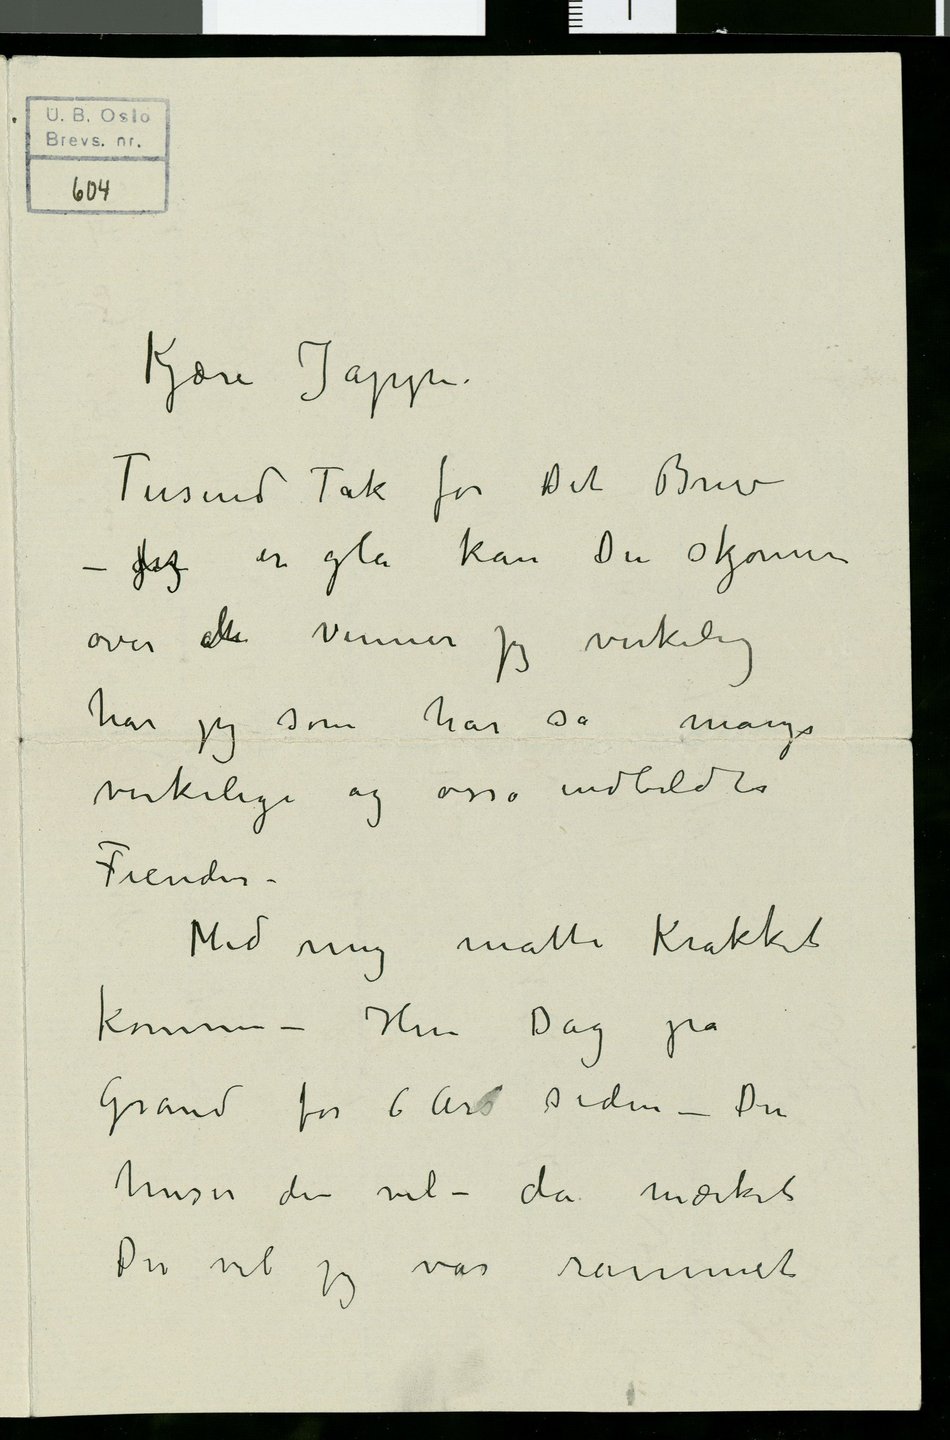 U. B. Oslo
Brevs. nr.
604
Kjære Jappe.
Tusend Tak for Dit Brev
– Jeg er gla kan Du skjønne
over de Venner jeg virkelig
har jeg som har så mange
virkelige og osså indbildte
Fiender –
Med mig måtte Krakket
komme – Hin Dag på
Grand for 6 Års siden – Du
huser de vel – da mærket
Du vel jeg var rammet